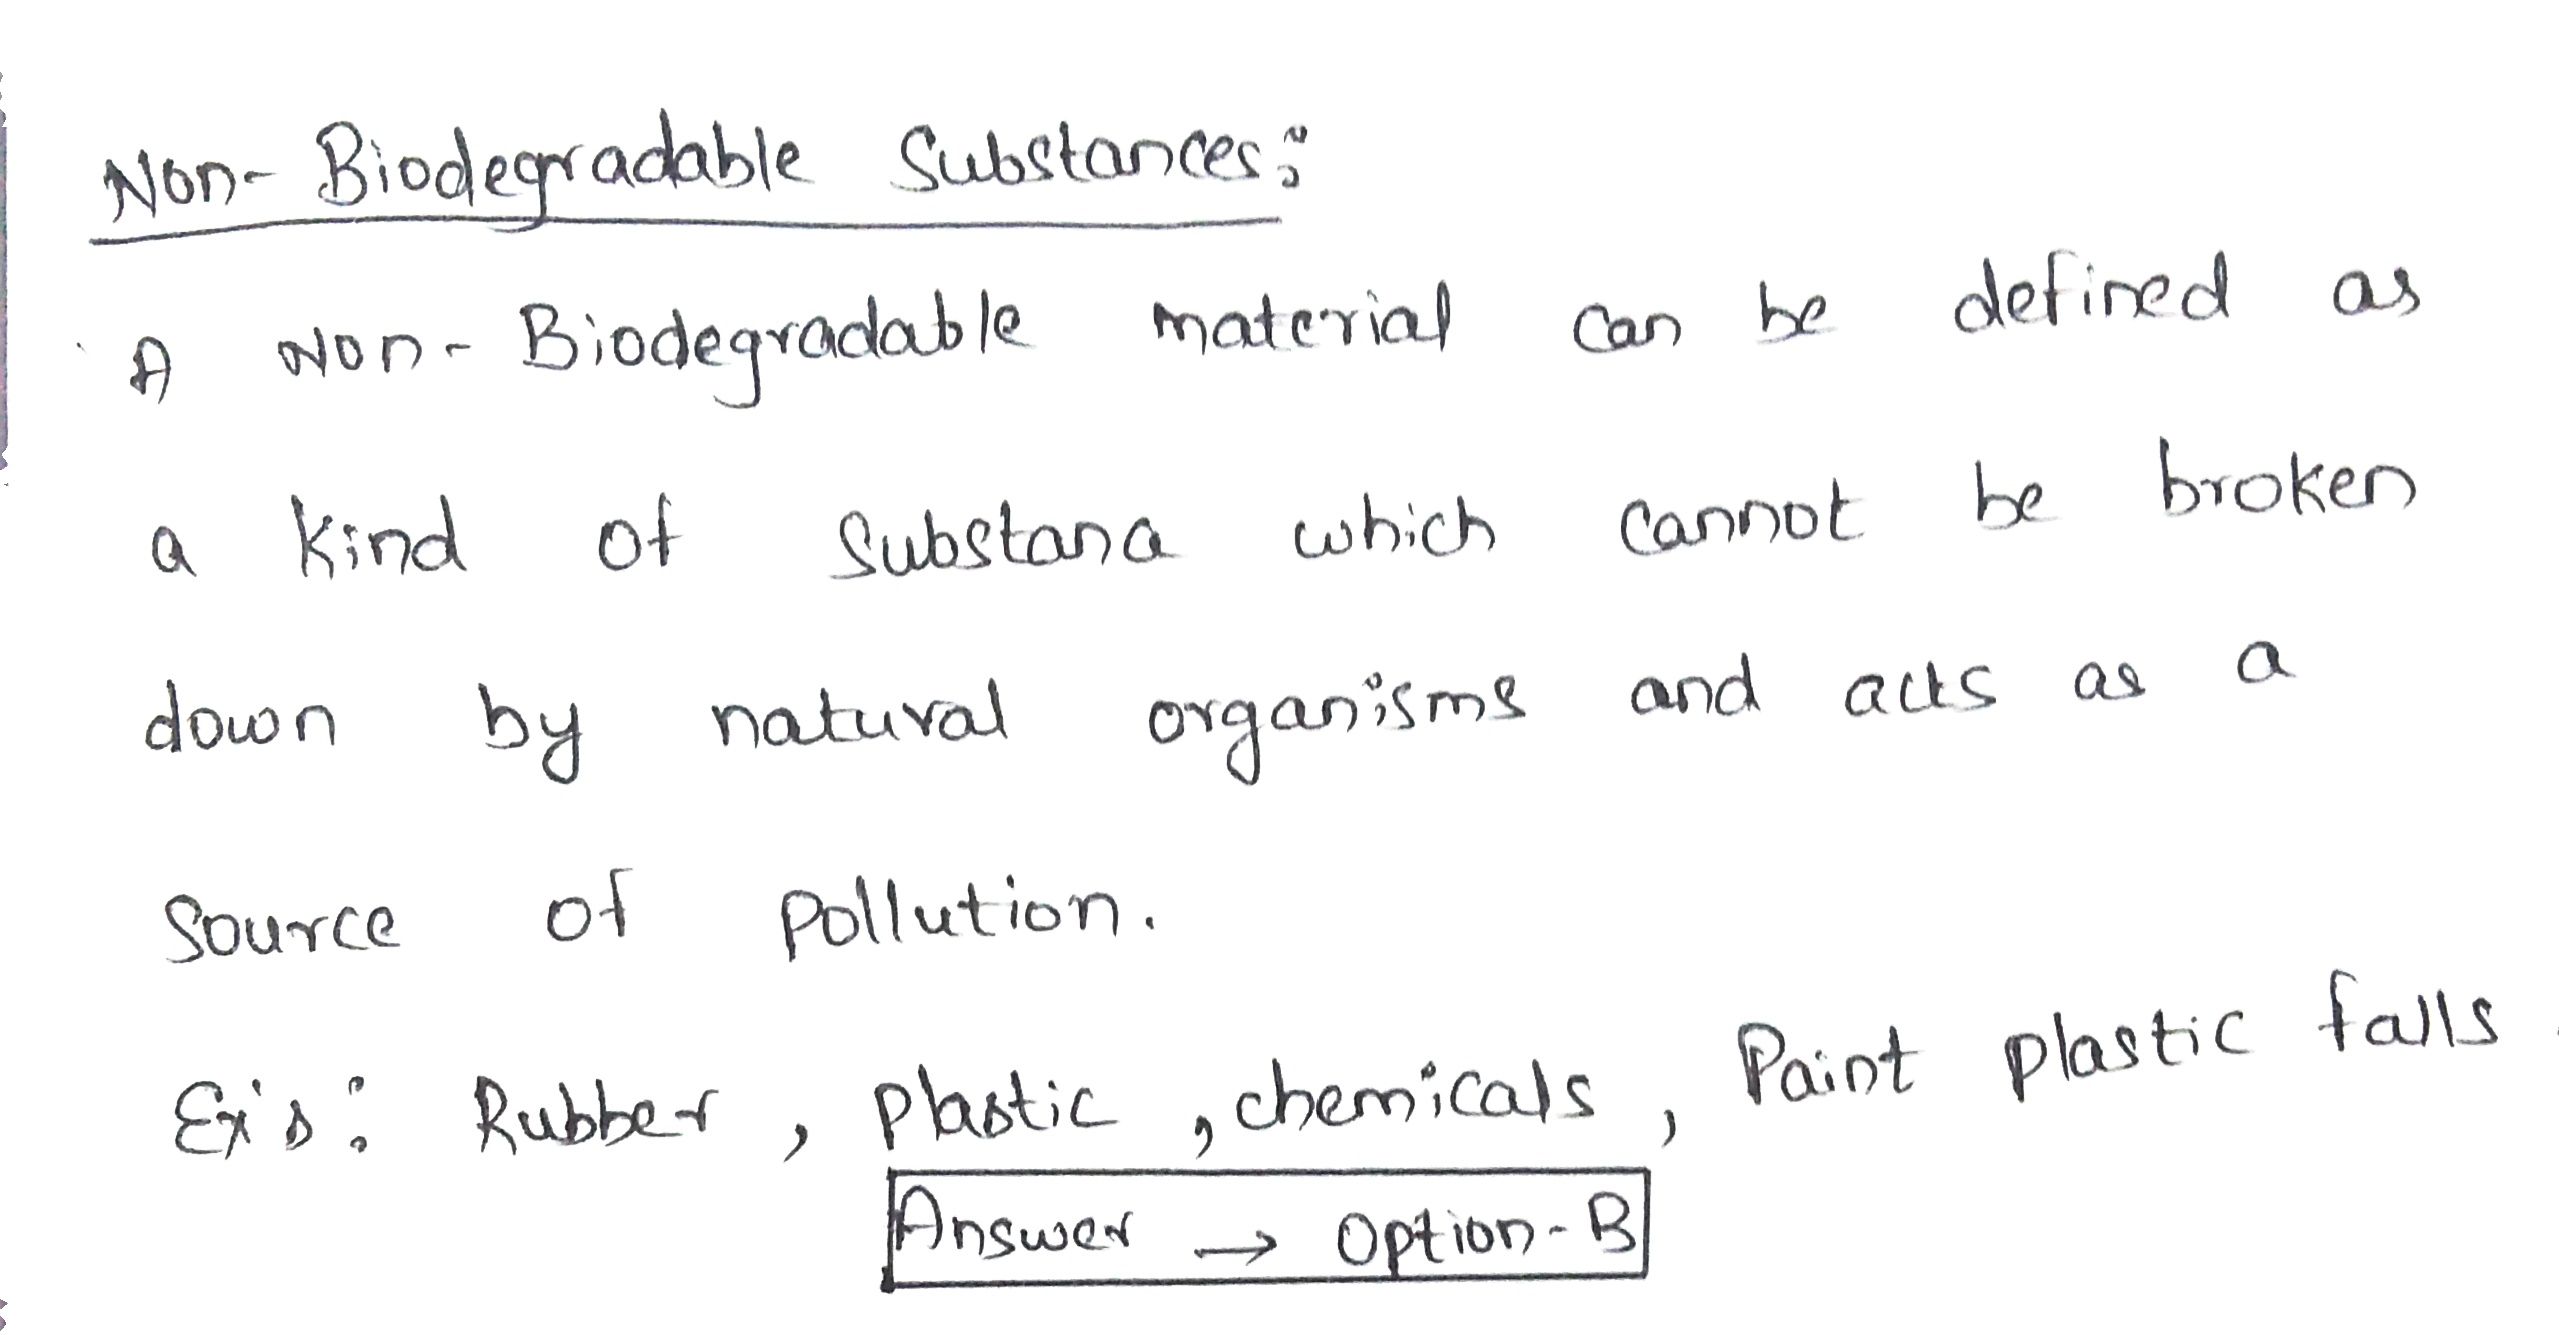 Non-Biodegradable Substances:
A Non-Biodegradable material can be defined as
a kind of Substana which cannot be broken
down by natural organisms and acts as a
Source of pollution.
Ex's: Rubber, plastic, chemicals, Paint plastic falls
Answer → Option-B